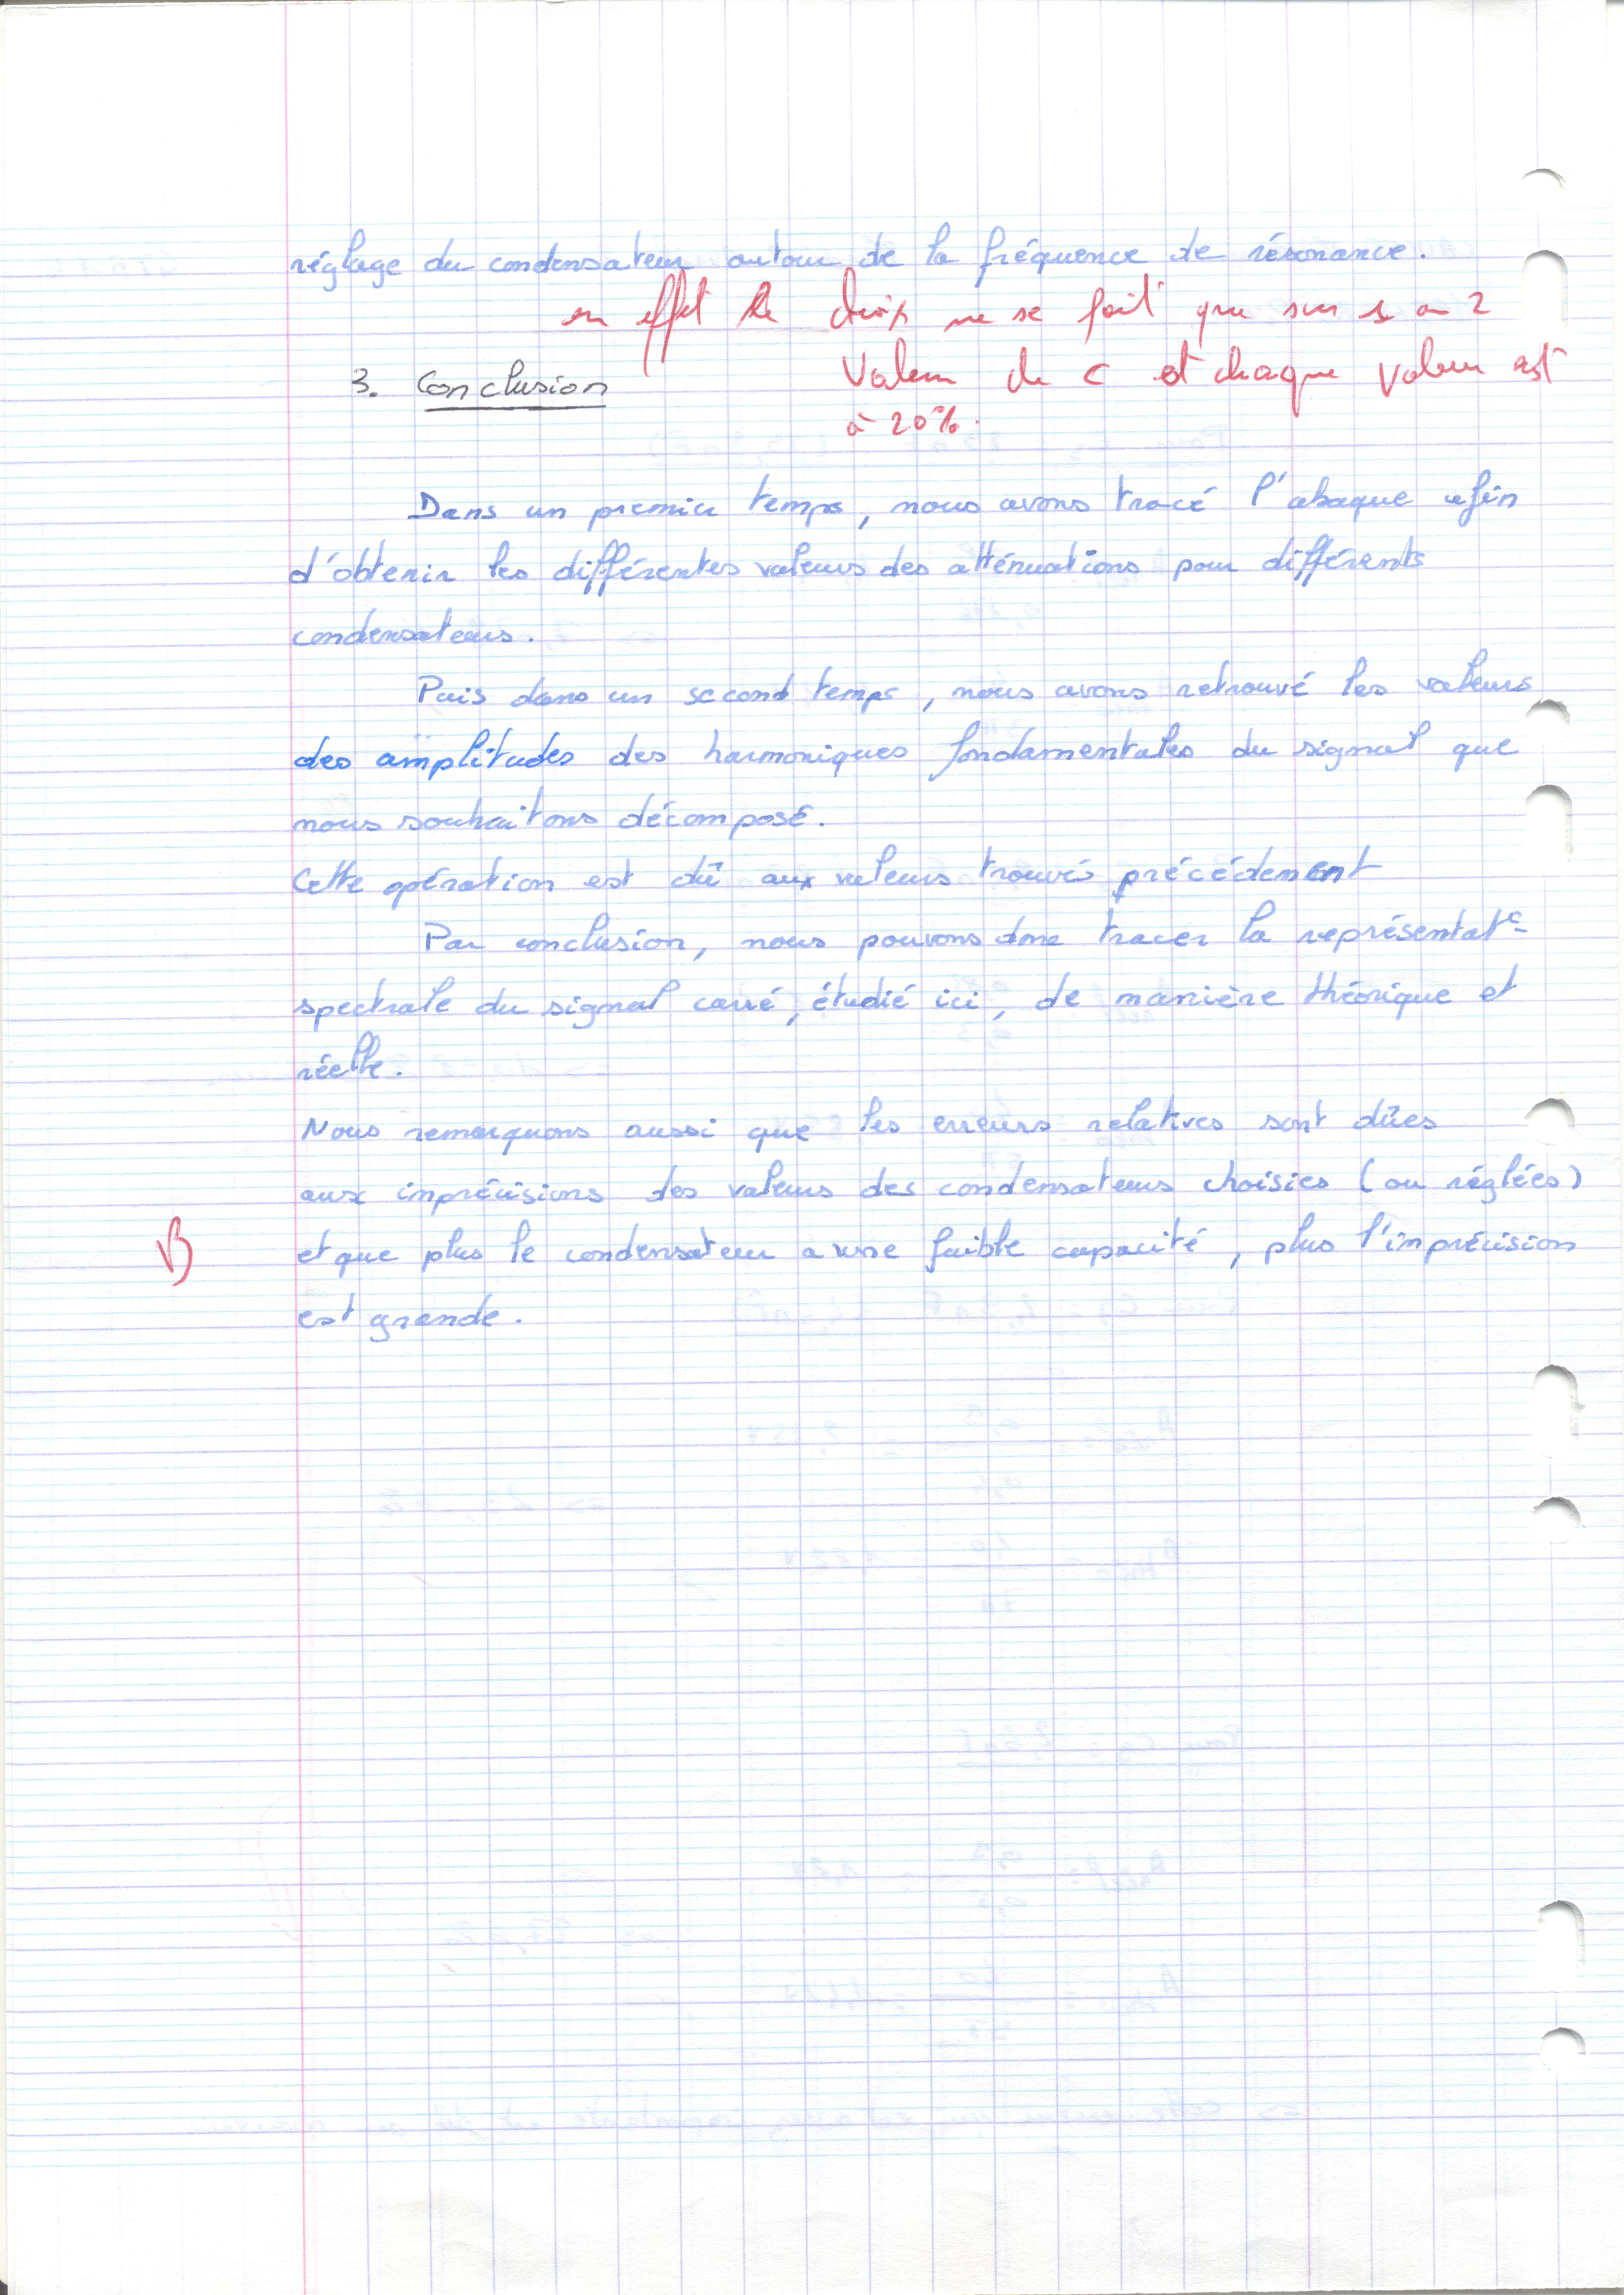 réglage du condensateur autour de la fréquence de résonance.
en effet le choix ne se fait que sur 1 ou 2
valeur de C et chaque valeur est
à 20%.
3. Conclusion
Dans un premier temps, nous avons tracé l'abaque afin
d'obtenir les différentes valeurs des atténuations pour différents
condensateurs.
Puis dans un second temps, nous avons retrouvé les valeurs
des amplitudes des harmoniques fondamentales du signal que
nous souhaitons décomposé.
Cette opération est dû aux valeurs trouvés précédement
Par conclusion, nous pouvons donc tracer la représentat°
spectrale du signal carré, étudié ici, de manière théorique et
réelle.
Nous remarquons aussi que les erreurs relatives sont dûes
aux imprécisions des valeurs des condensateurs choisies (ou réglées)
B
et que plus le condensateur a une faible capacité, plus l'imprécision
est grande.